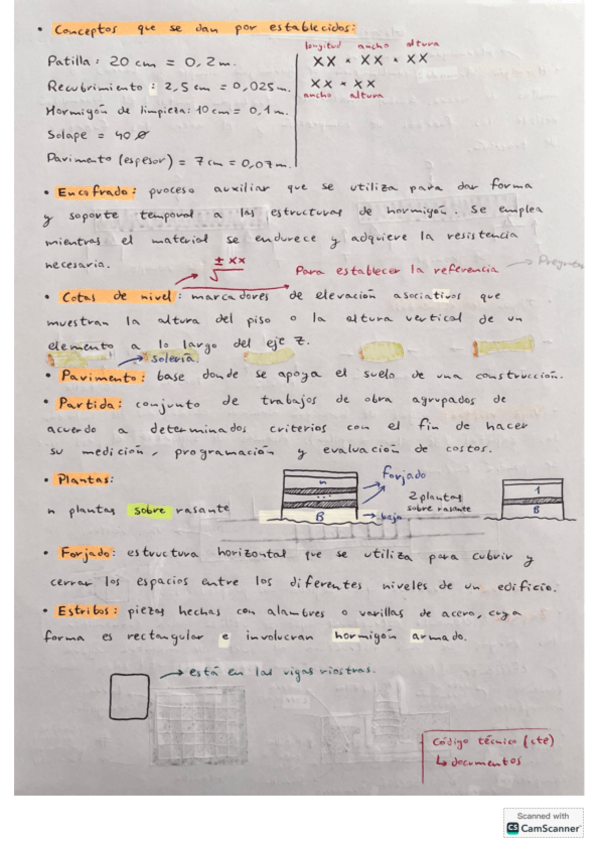 • Conceptos que se dan por establecidos:
Patilla: 20 cm = 0,2 m.
Recubrimiento: 2,5 cm = 0,025 m.
Hormigón de limpieza: 10 cm = 0,1 m.
Solape = 40 Ø
Pavimento (espesor) = 7 cm = 0,07 m.
longitud ancho altura
XX × XX × XX
XX × XX
ancho altura
• Encofrado: proceso auxiliar que se utiliza para dar forma
y soporte temporal a las estructuras de hormigón. Se emplea
mientras el material se endurece y adquiere la resistencia
necesaria.
± xx
Para establecer la referencia
• Cotas de nivel: marcadores de elevación asociativos que
muestran la altura del piso o la altura vertical de un
elemento a lo largo del eje Z.
solería
• Pavimento: base donde se apoya el suelo de una construcción.
• Partida: conjunto de trabajos de obra agrupados de
acuerdo a determinados criterios con el fin de hacer
su medición, programación y evaluación de costos.
• Plantas:
n plantas sobre rasante
n
B
Forjado
bajo
2 plantas
sobre rasante
1
B
• Forjado: estructura horizontal que se utiliza para cubrir y
cerrar los espacios entre los diferentes niveles de un edificio.
• Estribos: piezas hechas con alambres o varillas de acero, cuya
forma es rectangular e involucran hormigón armado.
está en las vigas riostras.
Código técnico (cte)
↳ documentos
Scanned with
CS CamScanner